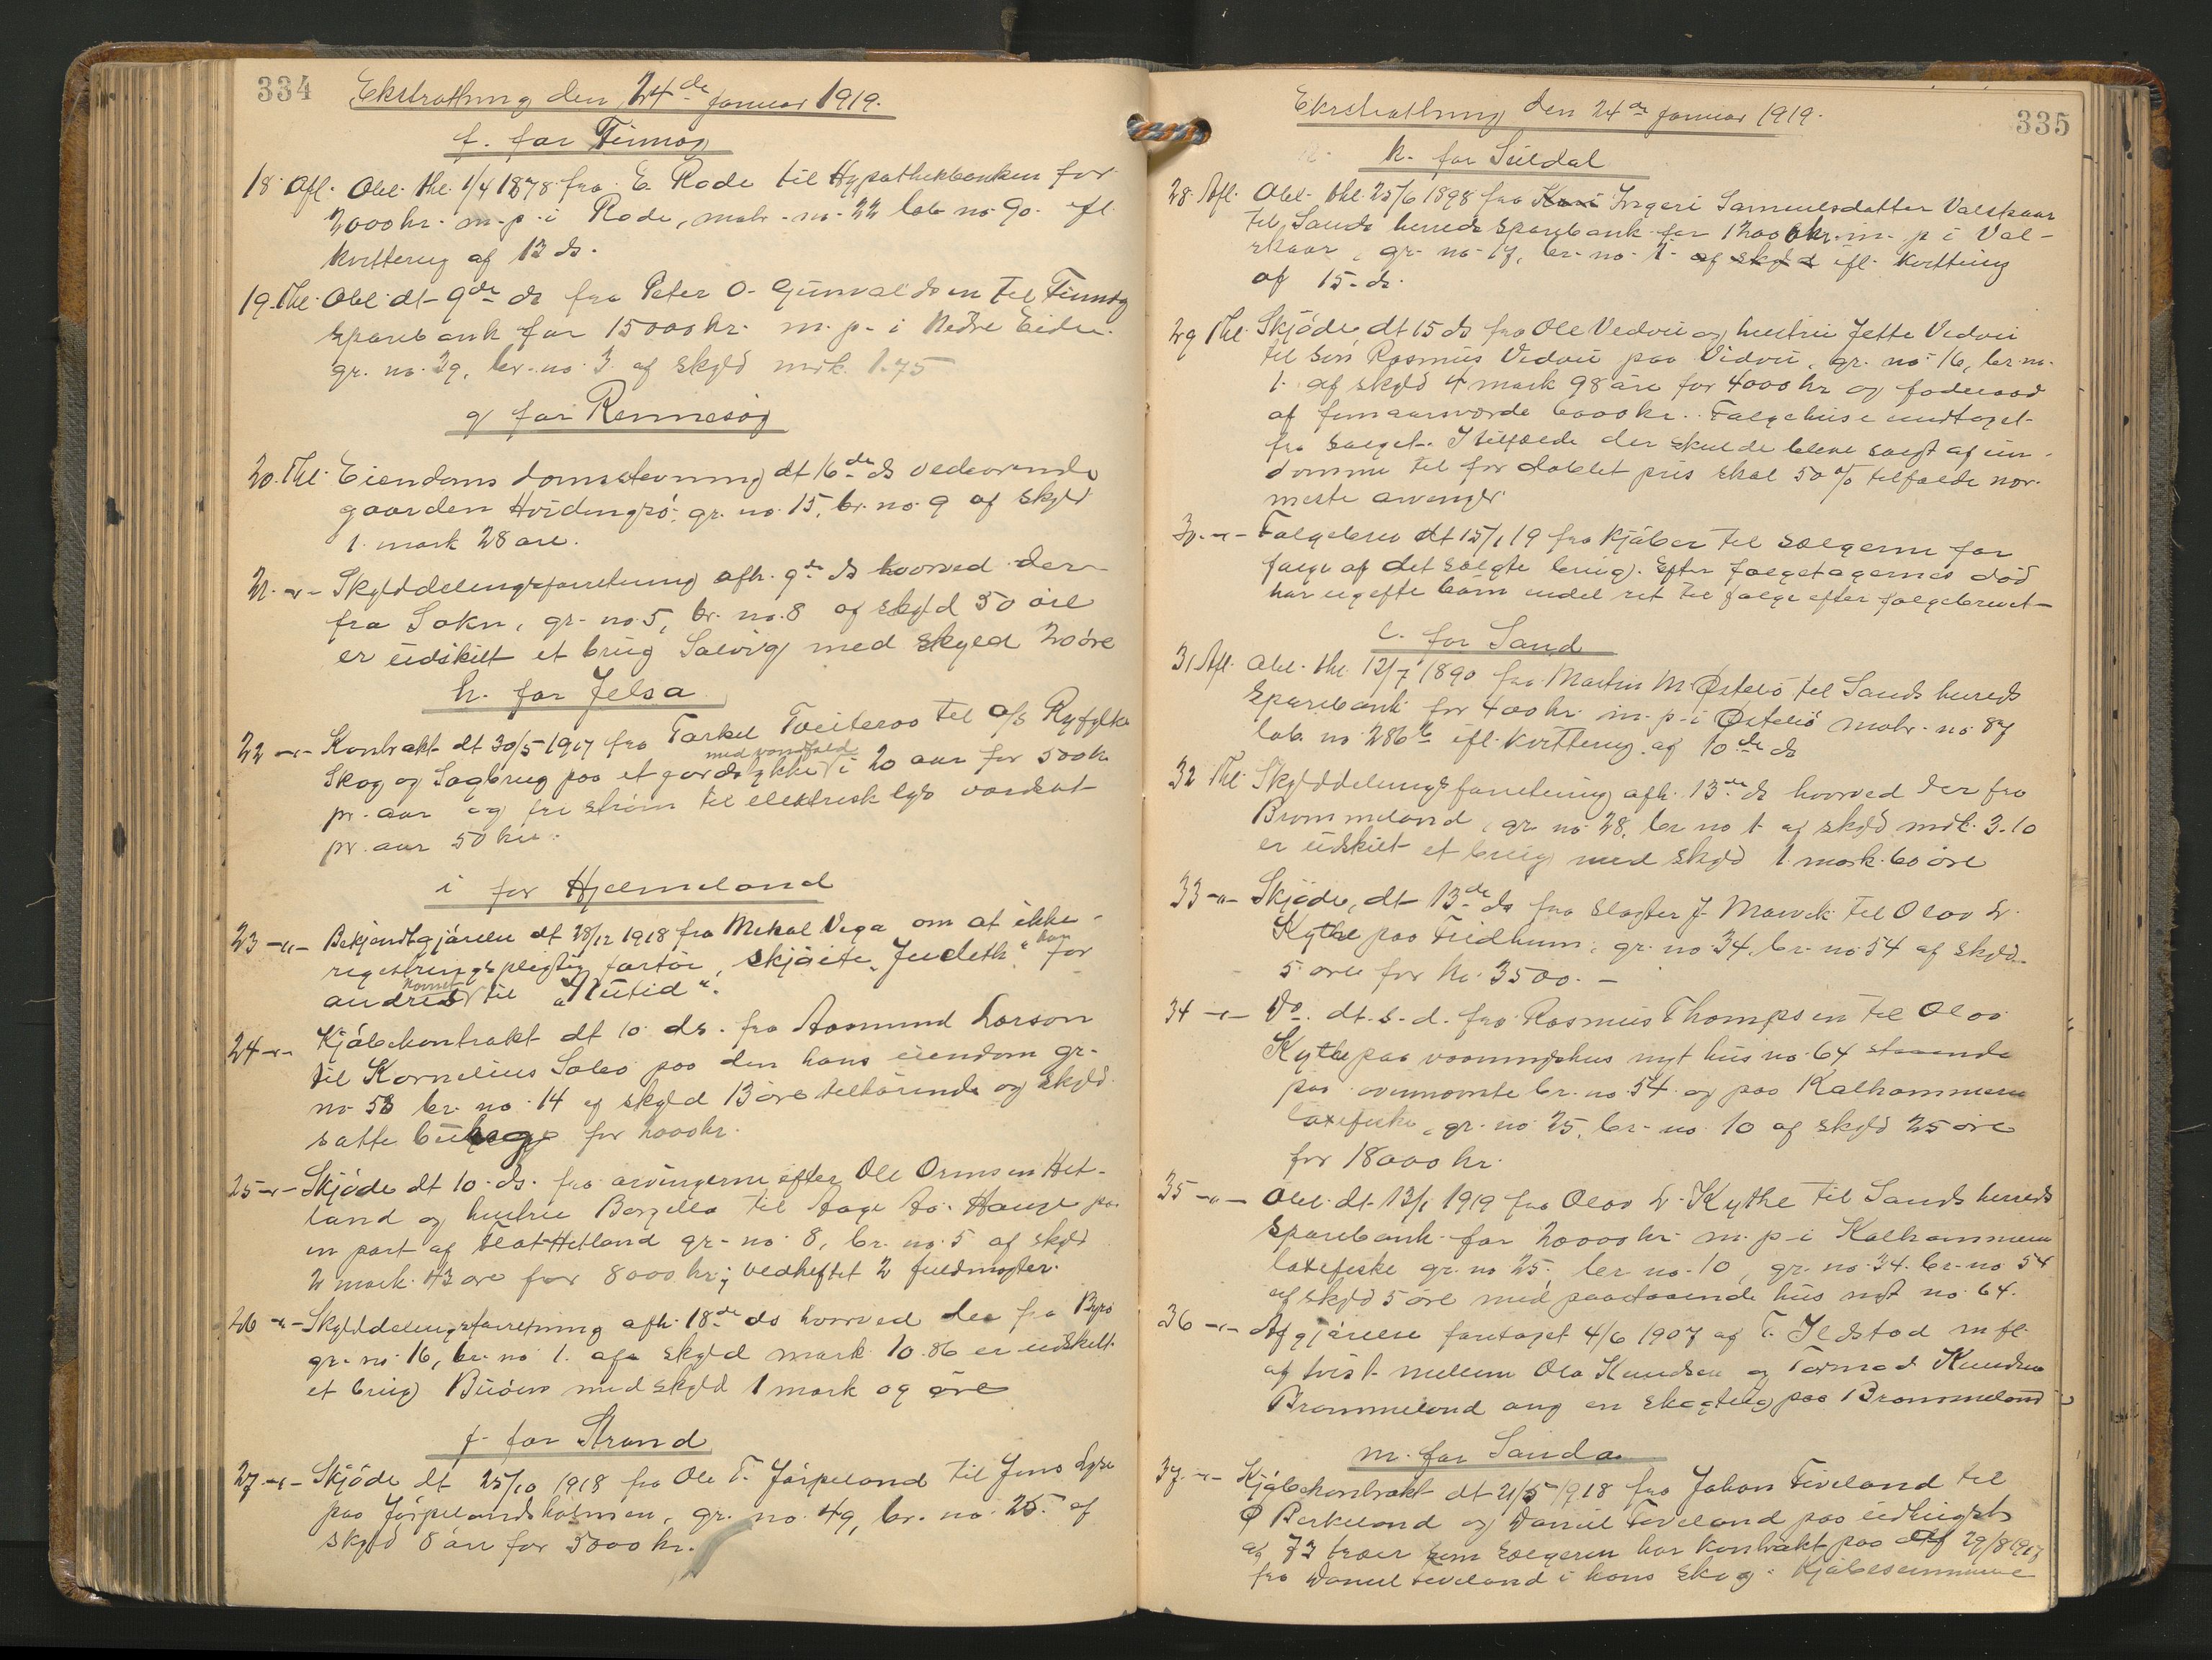 334
Ekstrathing den 24de januar 1919.
f. for Finnøy
18 Afl. Obl. thl. 1/4 1878 fra E. Rode til Hypothekbanken for
2000 kr. m. p. i Rode, matr. no. 22 løb no 90. ifl.
kvittering af 13 ds.
19. Thl. Obl. dt 9de ds fra Peter O. Gunvaldsen til Finnøy
Sparebank for 15000 kr. m. p. i Nedre Eide
gr. no. 39, br. no. 3 af skyld mrk. 1.75
g for Rennesøy
20. Thl. Eiendoms domsstevning dt 16de ds vedrørende
gaarden Hvidingsø, gr. no. 15, br. no. 9 af skyld
1. mark 28 øre.
21. -"- Skylddelingsforretning afh. 9de ds hvorved der
fra Sokn, gr. no. 5, br. no. 8 af skyld 50 øre
er udskilt et brug Solvig med skyld 20 øre
h. for Jelsa
22 -"- Kontrakt dt 30/5 1917 fra Torkel Tveiteraa til A/S Ryfylke
med vandfald
Skog og Sagbrug paa et jordstykke i 20 aar for 500 kr
pr. aar og fri strøm til elektrisk lys værdsat
pr. aar 50 kr.
i for Hjelmeland
23 -"- Bekjendtgjørelse dt 28/12 1918 fra Mikal Vega om at ikke
registreringspligtig fartøi, skjøite "Judeth" har for
navnet
andret til "Nutid".
24 -"- Kjøbekontrakt dt 10 ds. fra Aasmund Larson
til Kornelius Sabø paa den hans eiendom gr.
no 58 br. no. 14 af skyld 13 øre tilhørende og skyld
satte for 2000 kr.
25 -"- Skjøde dt 10. ds. fra arvingerne efter Ole Ormsen Het-
land og hustru Bergella til Aage Aa. Hauge paa
en part af Hetland gr. no. 8, br. no. 5 af skyld
2 mark 43 øre for 8000 kr; vedheftet 2 fuldmagter.
26 -"- Skylddelingsforretning afh. 18de ds hvorved der fra Byrø
gr. no 16, br. no 1. af skyld mark 10.86 er udskilt
et brug Buøen med skyld 1 mark og øre
j. for Strand
27 -"- Skjøde dt 25/10 1918 fra Ole T. Jørpeland til Jens Lyse
paa Jørpelandsholmen, gr. no. 49, br. no. 25. af
skyld 8 øre for 5000 kr.
335
Ekstrathing den 24de januar 1919.
k. for Suldal
28. Afl. Obl. thl. 25/6 1898 fra Kari Ingeri Samuelsdatter Valskaar
til Sands herreds Sparebank for 1200 kr. m. p. i Val-
skaar, gr. no. 17, br. no. 1. af skyld ifl. kvittering
af 15. ds.
29 Thl. Skjøde dt 15 ds fra Ole Vedvii og hustru Jette Vedvii
til søn Rasmus Vedvii paa Vidvii, gr. no. 16, br. no.
1. af skyld 4 mark 98 øre for 4000 kr og føderaad
af femaarsværde 6000 kr. Følgehuse undtaget
fra salget. I tilfælde der skulde bleve solgt af eien-
domme til for doblet pris skal 50 % tilfalde nær-
meste arvinger
30. -"- Følgebrev dt 15/1 19 fra kjøber til sælgerne for
følge af det solgte brug. Efter følgetagernes død
har ugifte børn endel ret til følge efter følgebrevet
l. for Sand
31 Afl. Obl. thl. 12/7 1890 fra Martin M. Østebø til Sands herreds
Sparebank for 400 kr. m. p. i Østebø matr. no. 87
løb. no 286b ifl. kvittering af 10de ds
32 Thl. Skylddelingsforretning afh. 13de ds hvorved der fra
Brommeland, gr. no. 28, br. no 1. af skyld mrk. 3.10
er udskilt et brug med skyld 1 mark 60 øre
33 -"- Skjøde, dt 13de ds fra Slagter J. Marvik til Olav L.
Kythe paa Fredheim, gr. no 34. br. no. 54 af skyld
5 øre for kr. 3500. -
34 -"- Do. dt. s. d. fra Rasmus Thompsen til Olav
Kythe paa vaaningshus nyt hus no. 64 staaende
paa ovennævnte br. no. 54 og paa Kalhammeren
laxefiske, gr. no. 25, br. no 10 af skyld 25 øre
for 18000 kr.
35 -"- Obl. dt. 13/1 1919 fra Olav L. Kythe til Sands herreds
Sparebank for 20000 kr. m. p. i Kalhammeren
laxefiske gr. no 25, br no. 10, gr. no. 34. br. no 54
af skyld 5 øre med paastaaende hus nyt no. 64.
36 -"- Afgjørelse foretaget 4/6 1907 af T. Ilstad m fl.
af tvist mellem Ola Knudsen og Tormod Knudsen
Brommeland ang en skogteig paa Brommeland
m. for Sauda
37. -"- Kjøbekontrakt dt 21/5 1918 fra Johan Fiveland til
O Berkeland og Daniel Fiveland paa udhugst
af 72 træer som sælgeren har kontrakt paa af 29/8 1917
fra Daniel Fiveland i hans skog. Kjøbesummen